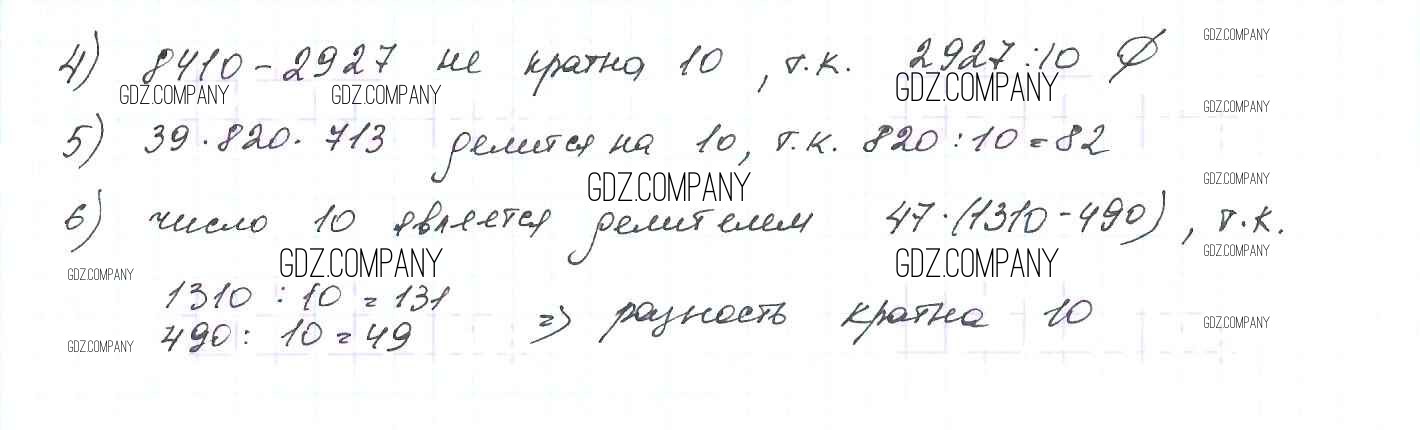 4) 8410 - 2927 не кратна 10, т.к. 2927 : 10 ∅
GDZ.COMPANY
GDZ.COMPANY GDZ.COMPANY GDZ.COMPANY
GDZ.COMPANY
5) 39 · 820 · 713 делится на 10, т.к. 820 : 10 = 82
GDZ.COMPANY GDZ.COMPANY
6) число 10 является делителем 47 · (1310 - 490), т.к.
GDZ.COMPANY GDZ.COMPANY GDZ.COMPANY
GDZ.COMPANY
1310 : 10 = 131
490 : 10 = 49 => разность кратна 10
GDZ.COMPANY GDZ.COMPANY